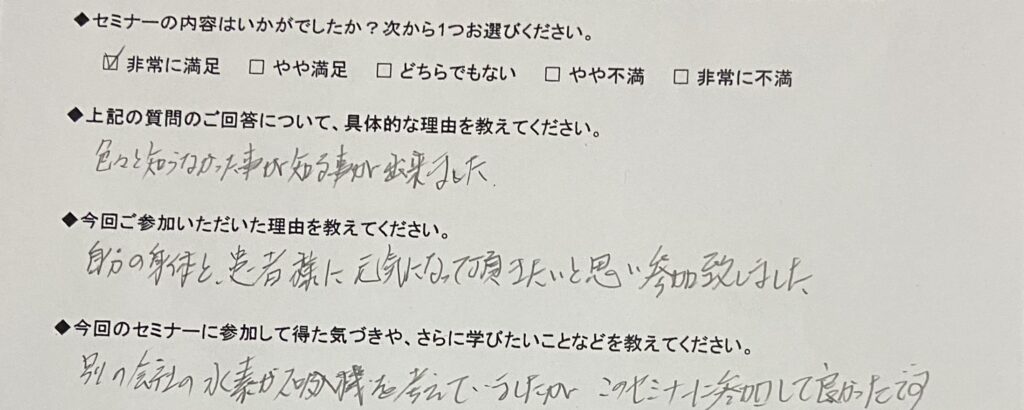 ◆セミナーの内容はいかがでしたか？次から1つお選びください。
☑ 非常に満足 □ やや満足 □ どちらでもない □ やや不満 □ 非常に不満
◆上記の質問のご回答について、具体的な理由を教えてください。
色々と知らなかった事が知る事が出来ました.
◆今回ご参加いただいた理由を教えてください。
自分の身体と、患者様に元気になって頂きたいと思い参加致しました、
◆今回のセミナーに参加して得た気づきや、さらに学びたいことなどを教えてください。
別の会社の水素ガス吸入機を考えていましたが このセミナーに参加して良かったです